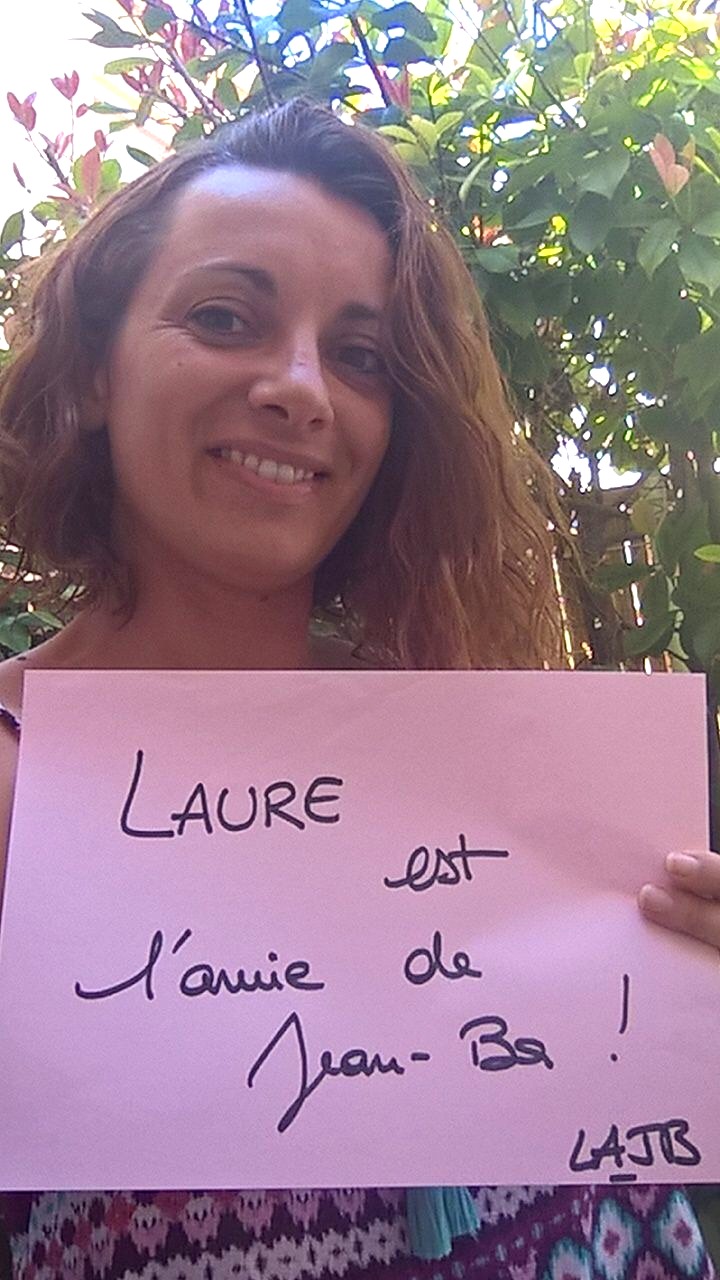 LAURE
est
l'amie de
Jean-Ba !
LAJB